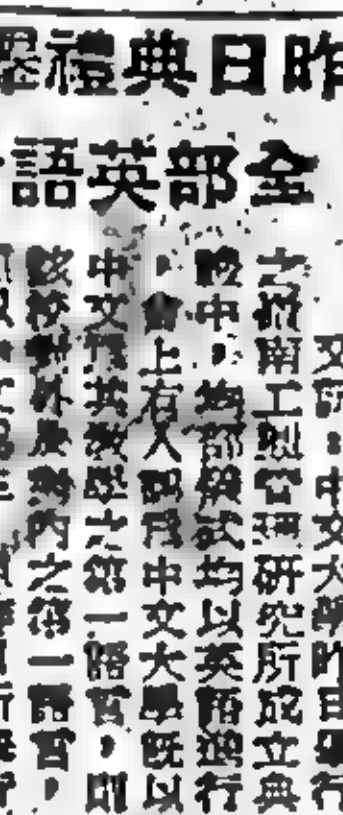 昨日典禮
全部英語
文訊：中文大學昨日舉行
之嶺南工商管理研究所成立典
禮中，部儀式均以英語進行
，會上有人認爲中文大學既以
中文爲其教學之第一語言，則
該校對外及對內之第一語言，